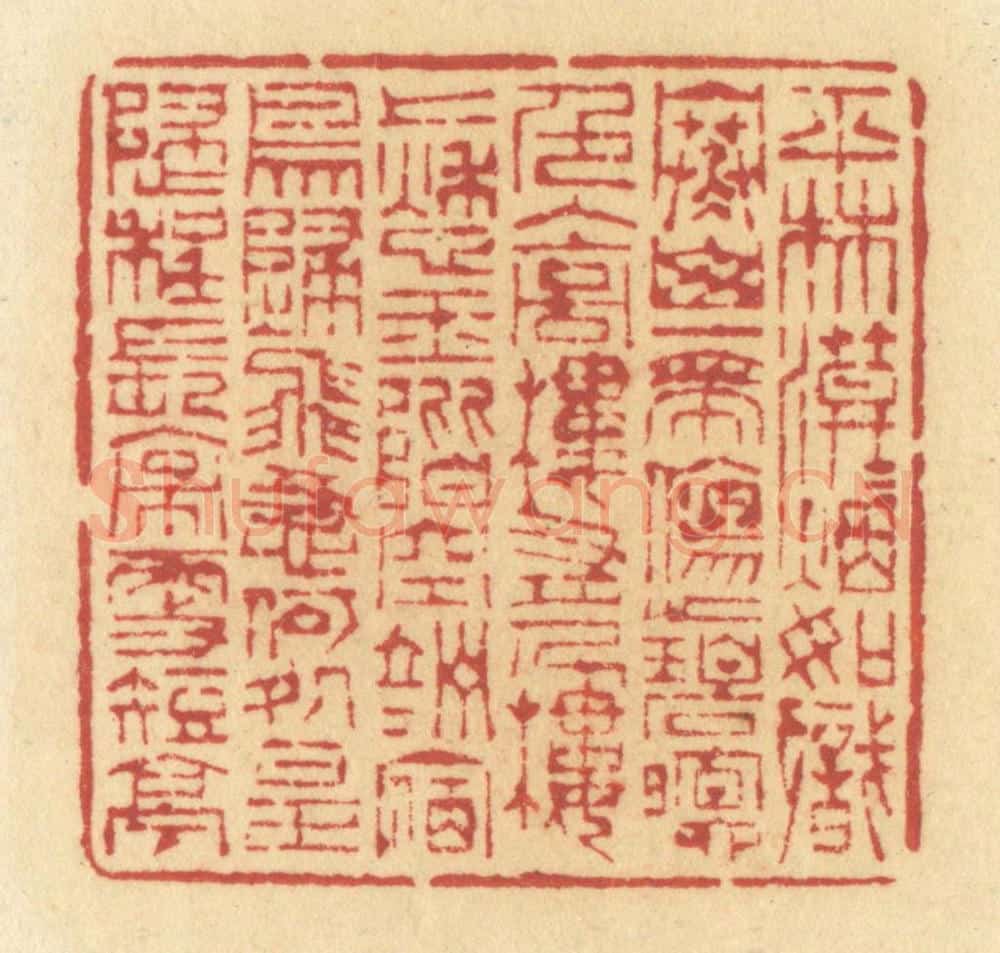 平林漠漠煙如織
寒山一帶傷心碧暝
色入高樓有人樓
上愁玉階空竚立宿
鳥歸飛急何処是
歸程長亭更短亭
Shufawang.CN